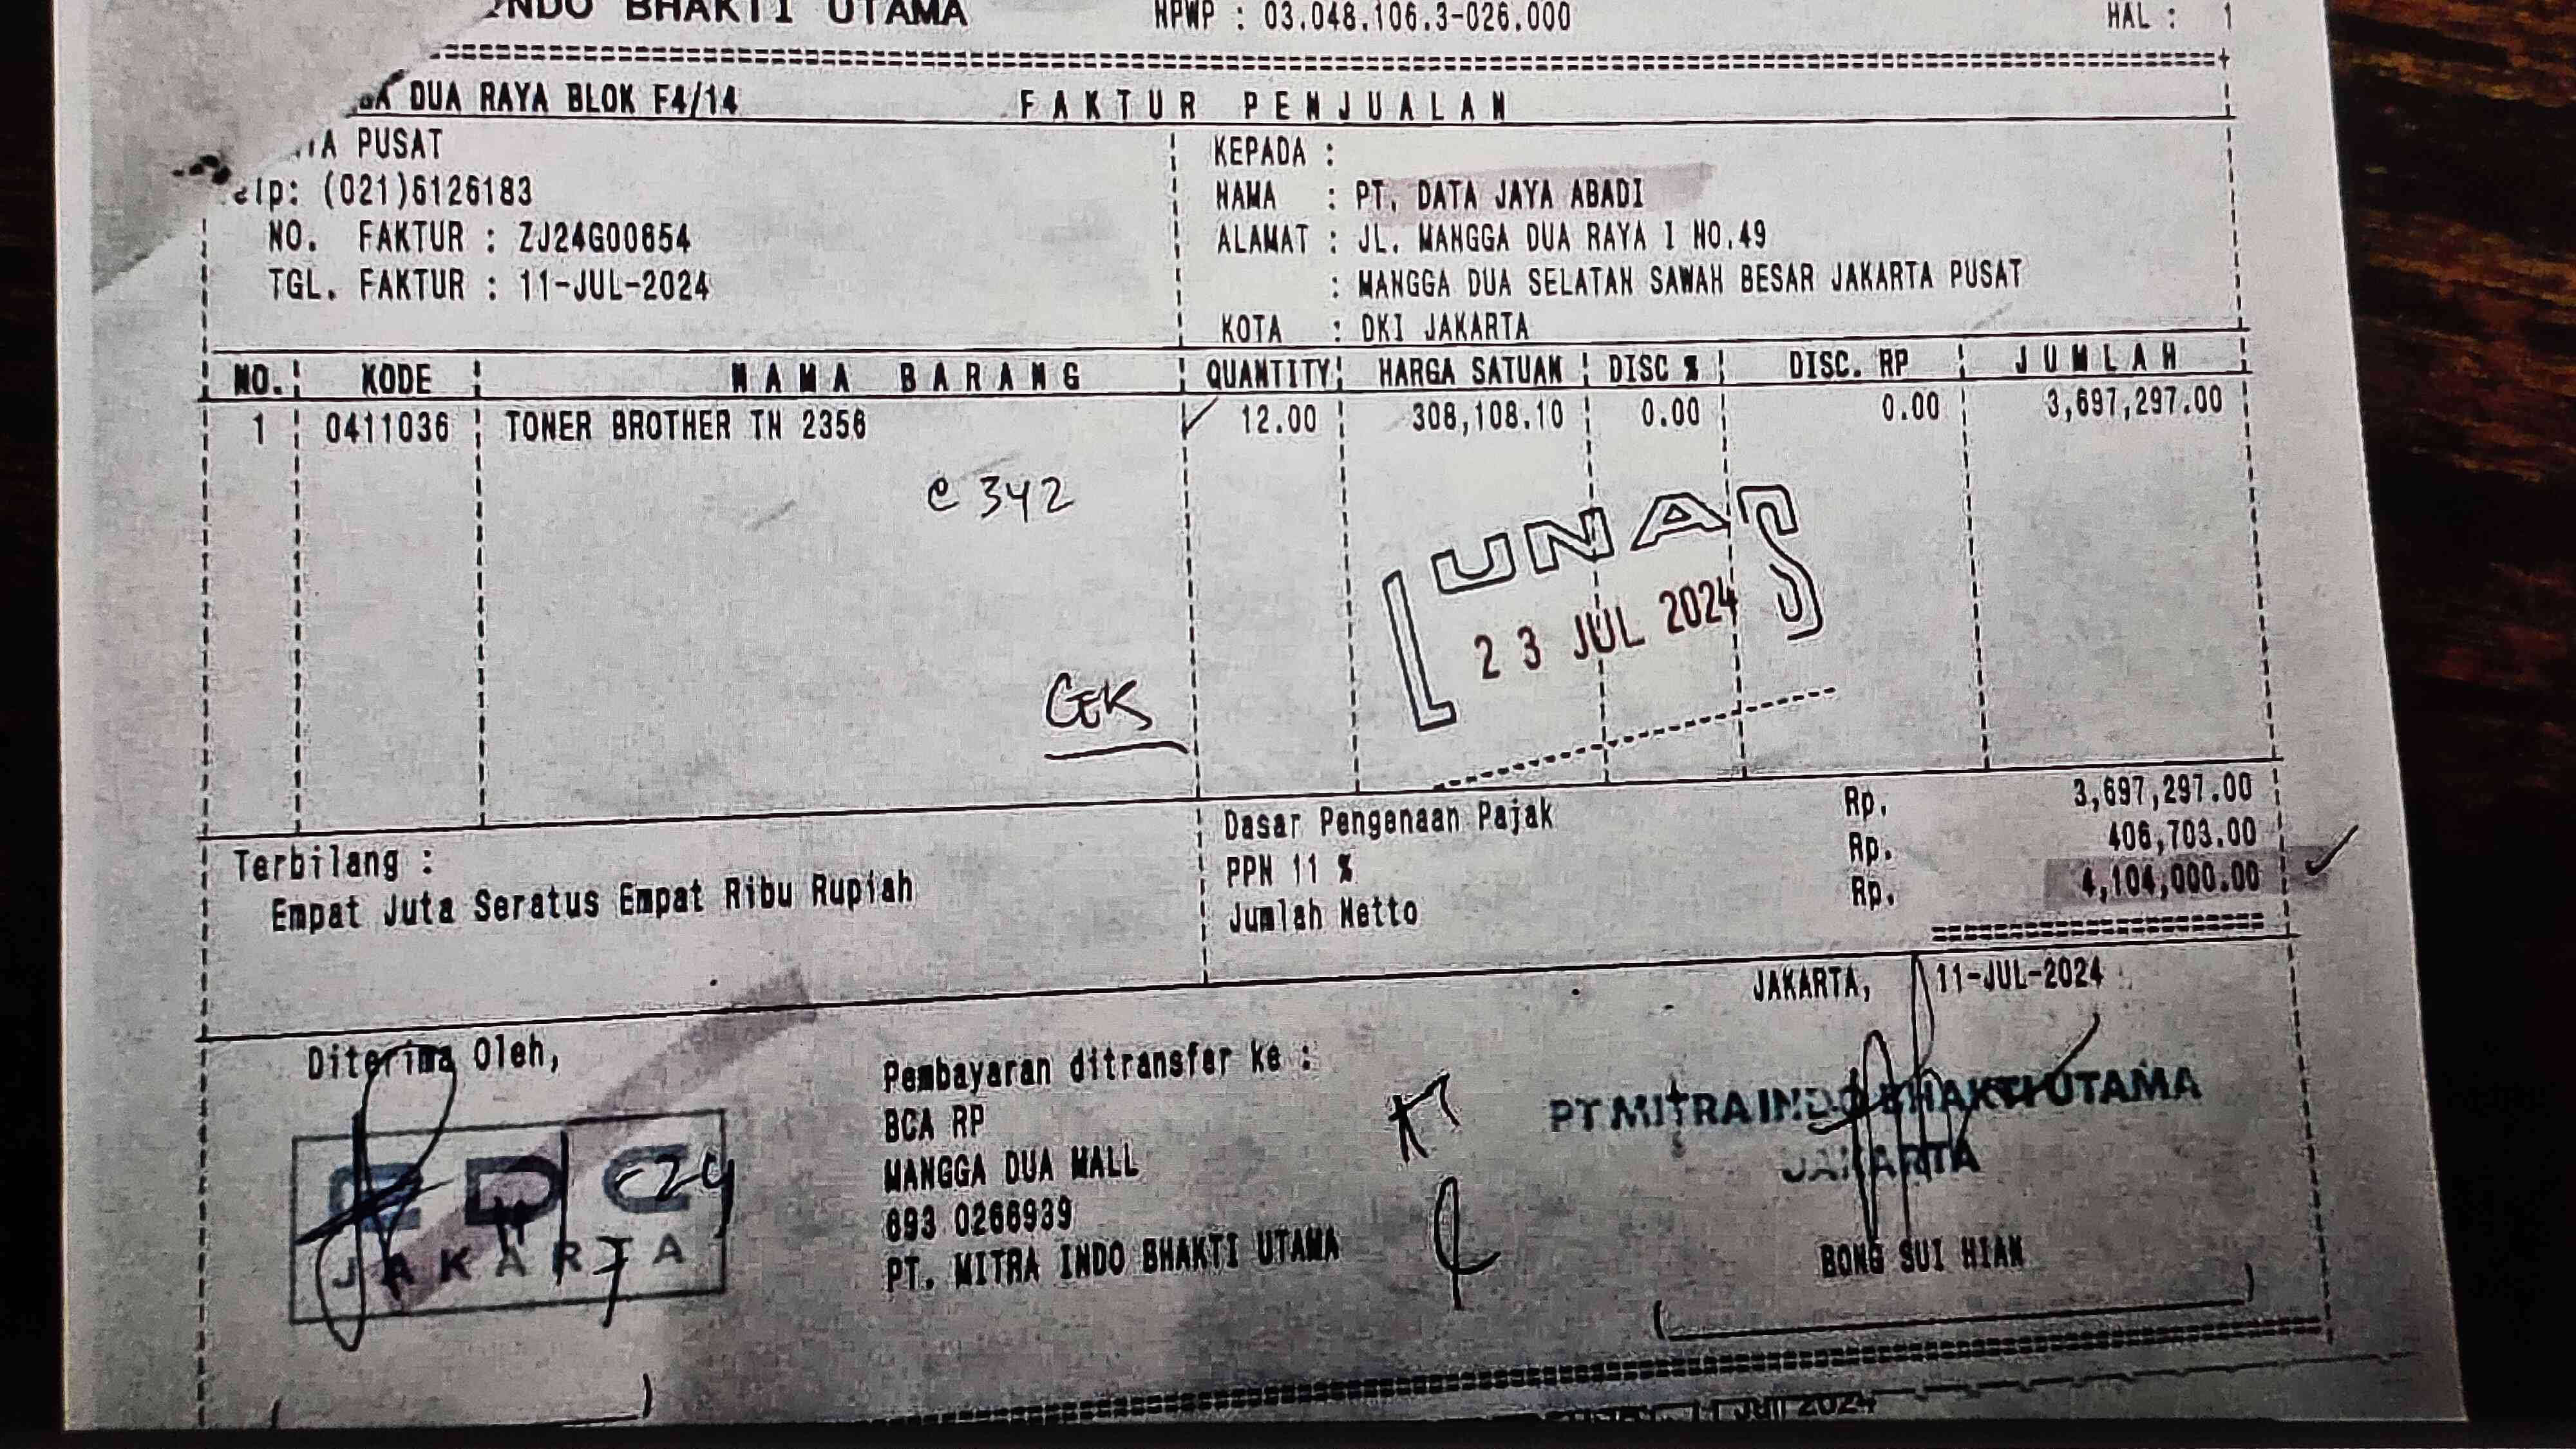 INDO BHAKTI UTAMA NPWP : 03.048.106.3-026.000 HAL : 1
DUA RAYA BLOK F4/14 FAKTUR PENJUALAN
PUSAT
(021)6126183
NO. FAKTUR : ZJ24G00654
TGL. FAKTUR : 11-JUL-2024
KEPADA :
NAMA : PT. DATA JAYA ABADI
ALAMAT : JL. MANGGA DUA RAYA I NO.49
: MANGGA DUA SELATAN SAWAH BESAR JAKARTA PUSAT
KOTA : DKI JAKARTA
NO. KODE NAMA BARANG QUANTITY HARGA SATUAN DISC % DISC. RP JUMLAH
1 0411036 TONER BROTHER TN 2356 12.00 308,108.10 0.00 0.00 3,697,297.00
@ 342
LUNAS
23 JUL 2024
CEK
Dasar Pengenaan Pajak Rp. 3,697,297.00
PPN 11 % Rp. 406,703.00
Jumlah Netto Rp. 4,104,000.00
Terbilang :
Empat Juta Seratus Empat Ribu Rupiah
JAKARTA, 11-JUL-2024
Diterima Oleh,
EDC
JAKARTA
Pembayaran ditransfer ke :
BCA RP
MANGGA DUA MALL
693 0266939
PT. MITRA INDO BHAKTI UTAMA
PT MITRA INDO BHAKTI UTAMA
JAKARTA
BONG SUI HIAN